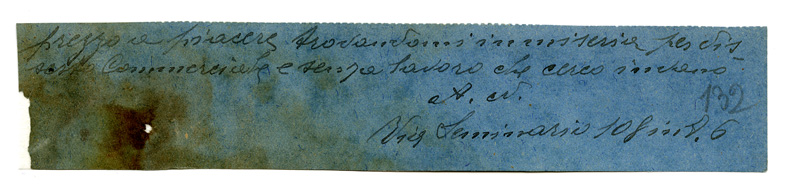 prezzo a piacere trovandomi in miseria per dis
sesto Commerciale e senza lavoro che cerco invano
A. N.
132
Via Seminario 10